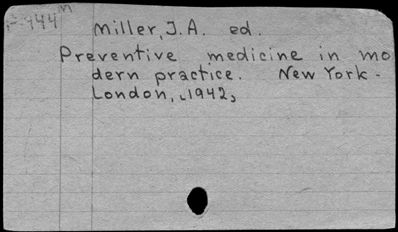 M
F-444
Miller, J.A. ed.
Preventive medicine in mo
dern practice. New York -
London, [1942]